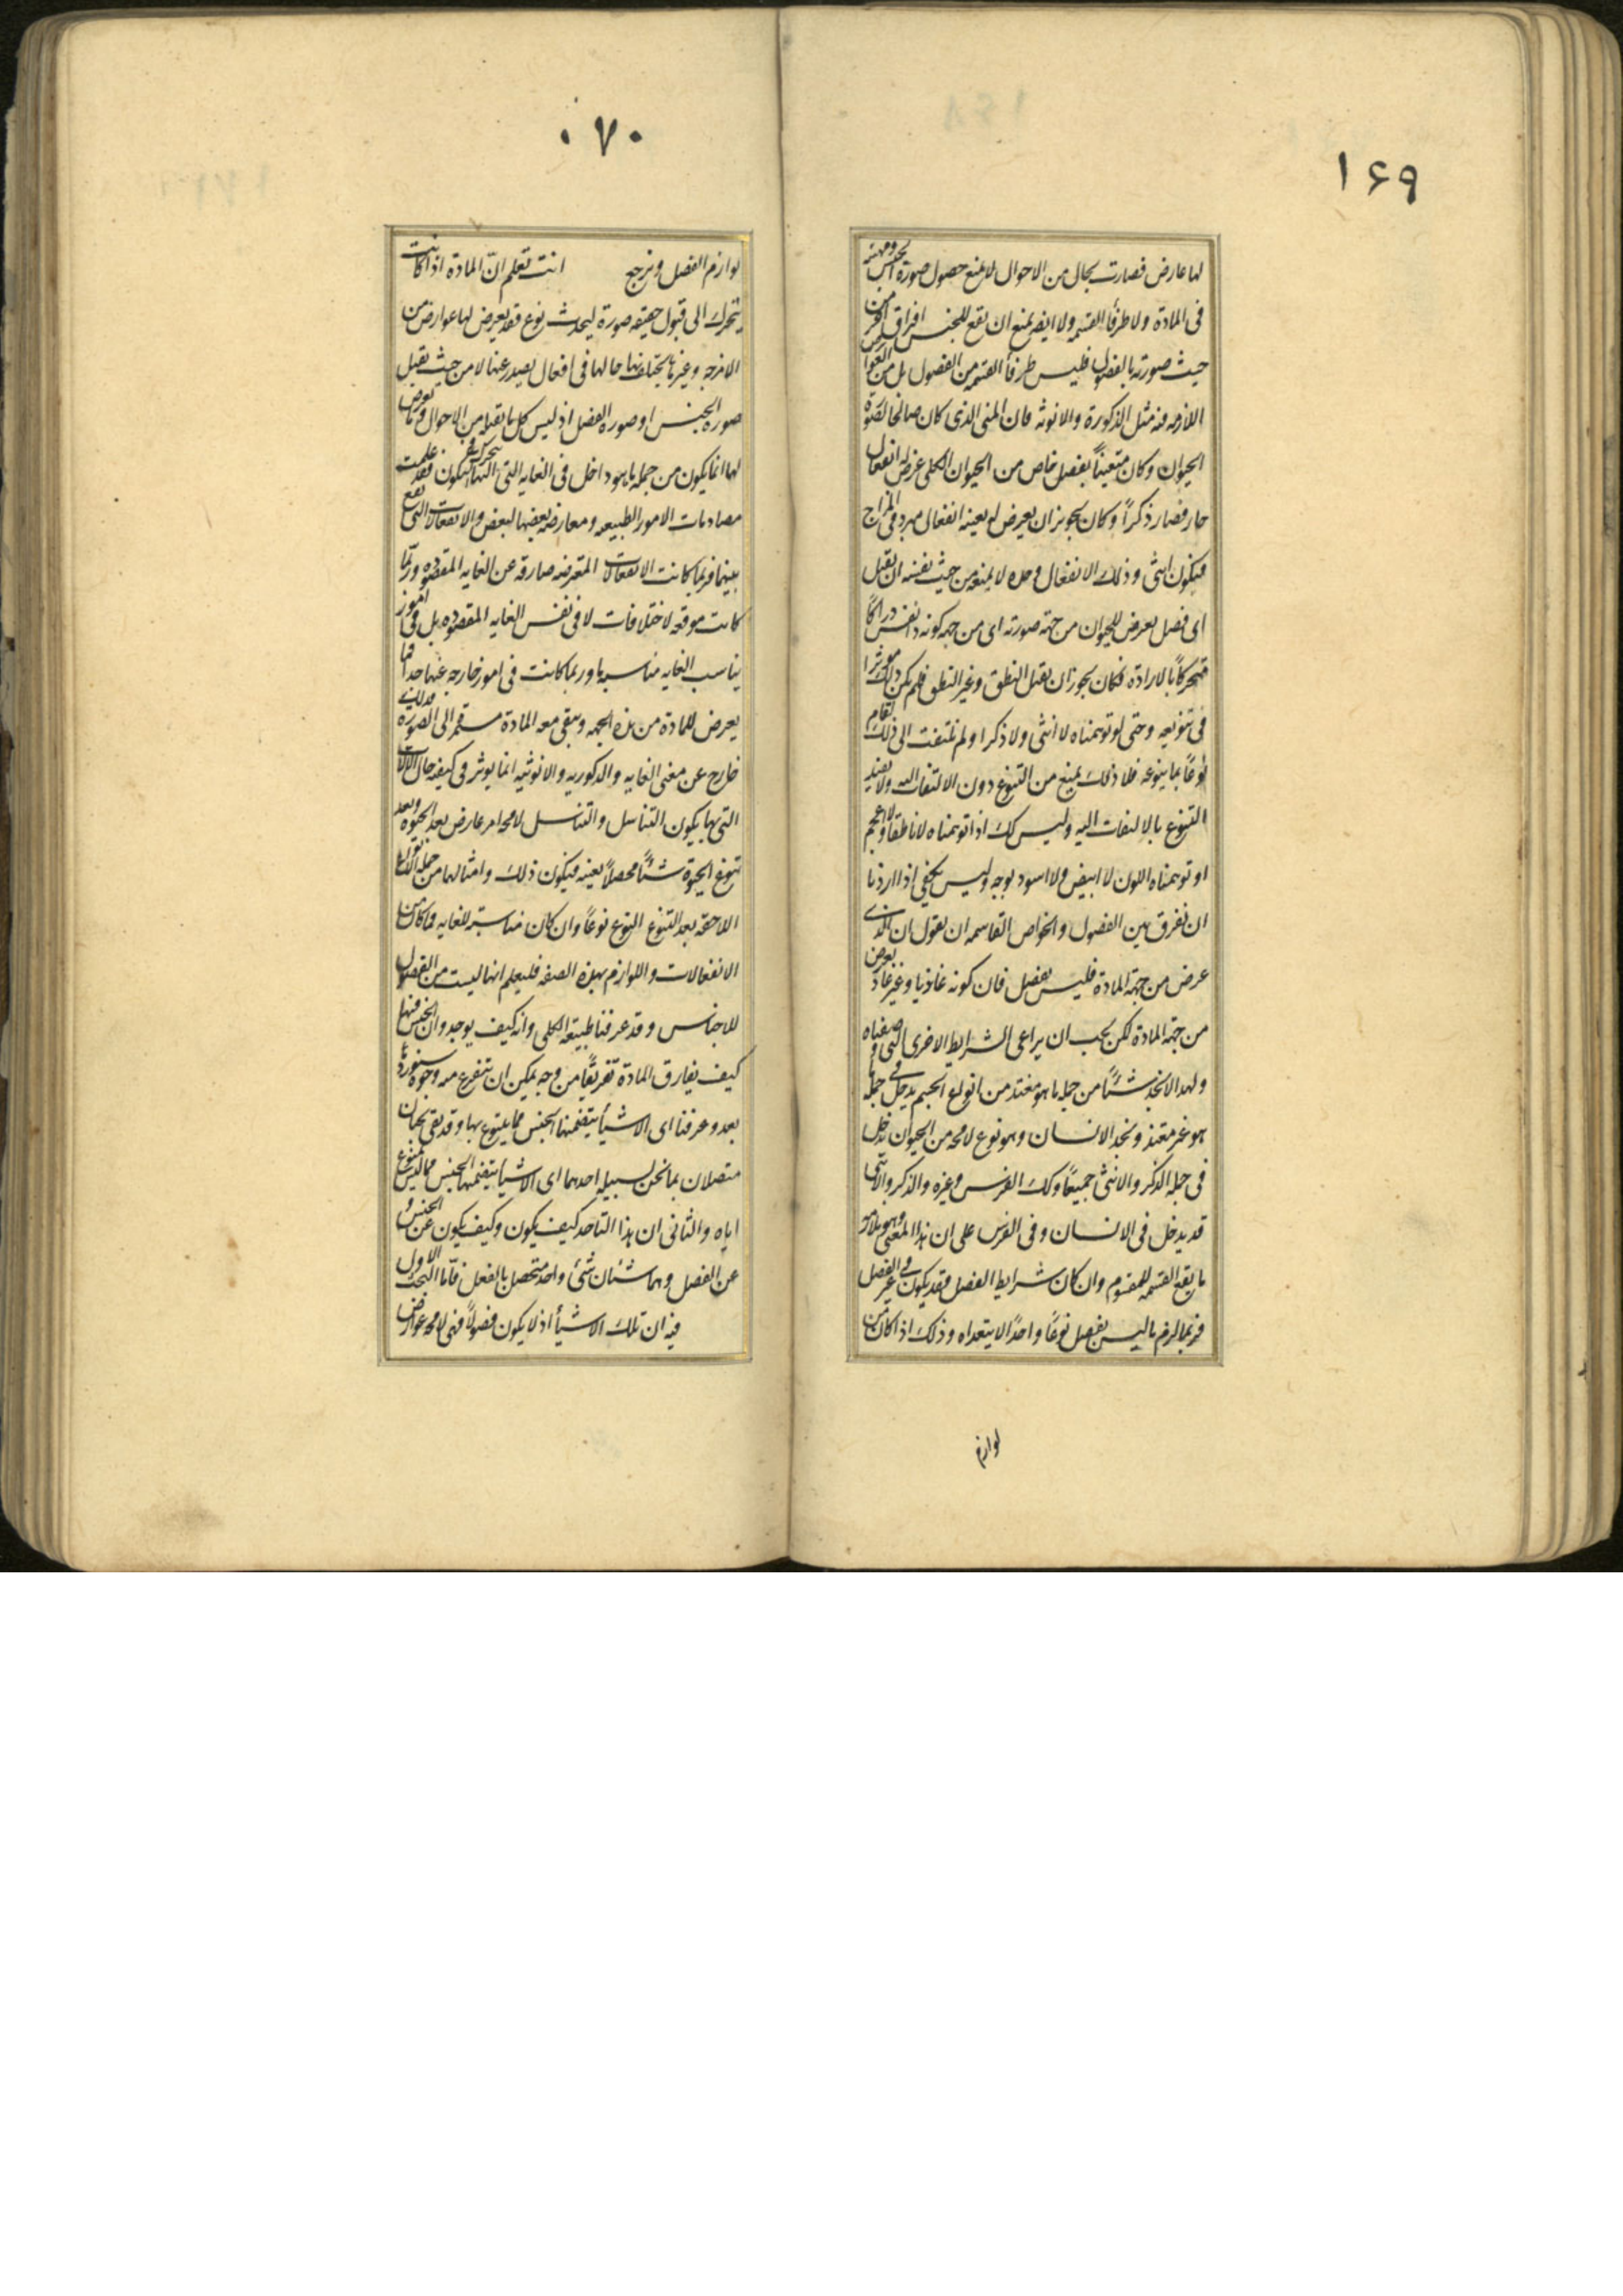 ١۶٩
لها عارض فصارت بحال من الاحوال لا يمنع حصول صورة الجنس ومهيته
فى المادة ولا طرفا القسمه ولا ايضه يمنع ان يقع للجنس افراق اخر من
حيث صورته بالفصول فليس طرفا القسمه من الفصول بل من العوارض
اللازمه فنه مثل الذكورة والانوثه فان المنى الذى كان صالحا لصورة
الحيوان وكان متعيناً بفصل خاص من الحيوان الكلى عرض له انفعال
حار فصار ذكراً وكان يجوز ان يعرض له بعينه انفعال مبرد فى المزاج
فيكون انثى وذلك الانفعال وحده لا يمنعه من حيث نفسه ان يقبل
اى فصل يعرض للحيوان من جهة صورته اى من جهه كونه ذا نفس دراكاً
متحركاً بالارادة فكان يجوز ان يقبل النطق وغير النطق فلم يكن ذلك موثرا
فى تنويعه وحتى لو توهمناه لا انثى ولا ذكرا ولم نلتفت الى ذلك لقام
نوعاً بما ينوعه فلا ذلك يمنع من التنوع دون الالتفات اليه ولا يفيد
التنوع بالالتفات اليه وليس كك اذا توهمناه لا ناطقاً ولا اعجم
او توهمناه اللون لا ابيض ولا اسود بوجه وليس يكفى اذا اردنا
ان نفرق بين الفصول والخواص القاسمه ان نقول ان الذى
عرض من جهة المادة فليس بفصل فان كونه غاذيا وغير غاذ يعرض
من جهة المادة لكن يجب ان يراعى الشرايط الاخرى التى وصفناه
ولهذا لا نجد شئاً من جمله ما هو مغتذ من انواع الجسم يدخل فى جمله ما
هو غير مغتذ ونجد الانسان وهو نوع لا محه من الحيوان يدخل
فى جمله الذكر والانثى جميعاً وكك الفرس وغيره والذكر والانثى
قد يدخل فى الانسان وفى الفرس على ان هذا المعنى وهو ملازمة
ما يقع القسمه للمقسوم وان كان شرايط الفصل فقد يكون فى غير الفصل
فربما لزم ما ليس بفصل نوعاً واحداً لا يتعداه وذلك اذا كان من
لوازم
٠٧٠
لوازم الفصل ونرجع انت تعلم ان المادة اذا كانت
يتحرك الى قبول حقيقه صورة ليحدث نوع فقد يعرض لها عوارض من
الامزجه وغيرها يختلف بها حالها فى افعال يصدر عنها لا من حيث يقبل
صوره الجنس او صوره الفصل اذ ليس كل ما يقبله من الاحوال وما يعرض
لها انما يكون من جمله ما هو داخل فى الغايه التى اليها يتحرك فى تكون فقد علمت
مصادمات الامور الطبيعه ومعارضه بعضها لبعض والانفعالات التى يقع
بينها فربما كانت الانفعالات المتعرضه صارفه عن الغايه المقصوده وربما
كانت موقعه لاختلافات لا فى نفس الغايه المقصوده بل فى امور
يناسب الغايه مناسبه ما وربما كانت فى امور خارجه عنها جداً فما
يعرض للمادة من هذه الجهه ويبقى معه المادة مستقره الى الصوره فذلك
خارج عن معنى الغايه والذكوريه والانوثيه انما يوثر فى كيفيه حال الالات
التى بها يكون التناسل والتناسل لا محه امر عارض بعد الحيوه وبعد
تنوع الحيوة شئاً محصلاً بعينه فيكون ذلك وامثالها من جمله الاحوال
اللاحقه بعد التنوع النوع نوعاً وان كان مناسبة للغايه فما كان من
الانفعالات واللوازم بهذه الصفه فليعلم انها ليست من الفصول
للاجناس وقد عرفنا طبيعه الكلى وانه كيف يوجد وان الجنس منها
كيف يفارق المادة تفريقاً من وجه يمكن ان يتفرع منه وجوه سنوردها
بعد وعرفنا اى الاشيأ يتضمنها الجنس مما يتنوع بها وقد يقى بحثان
متصلان بما نحن لسبيله احدهما اى الاشيا يتضمنها الجنس مما ليس بمنوع
اياه والثانى ان هذا التاحد كيف يكون وكيف يكون عن الجنس و
عن الفصل وهما شئان شئ واحد متحصل بالفعل فاما البحث الاول
فيه ان تلك الاشيأ اذ لا يكون فصولاً فهى لا محه عوارض